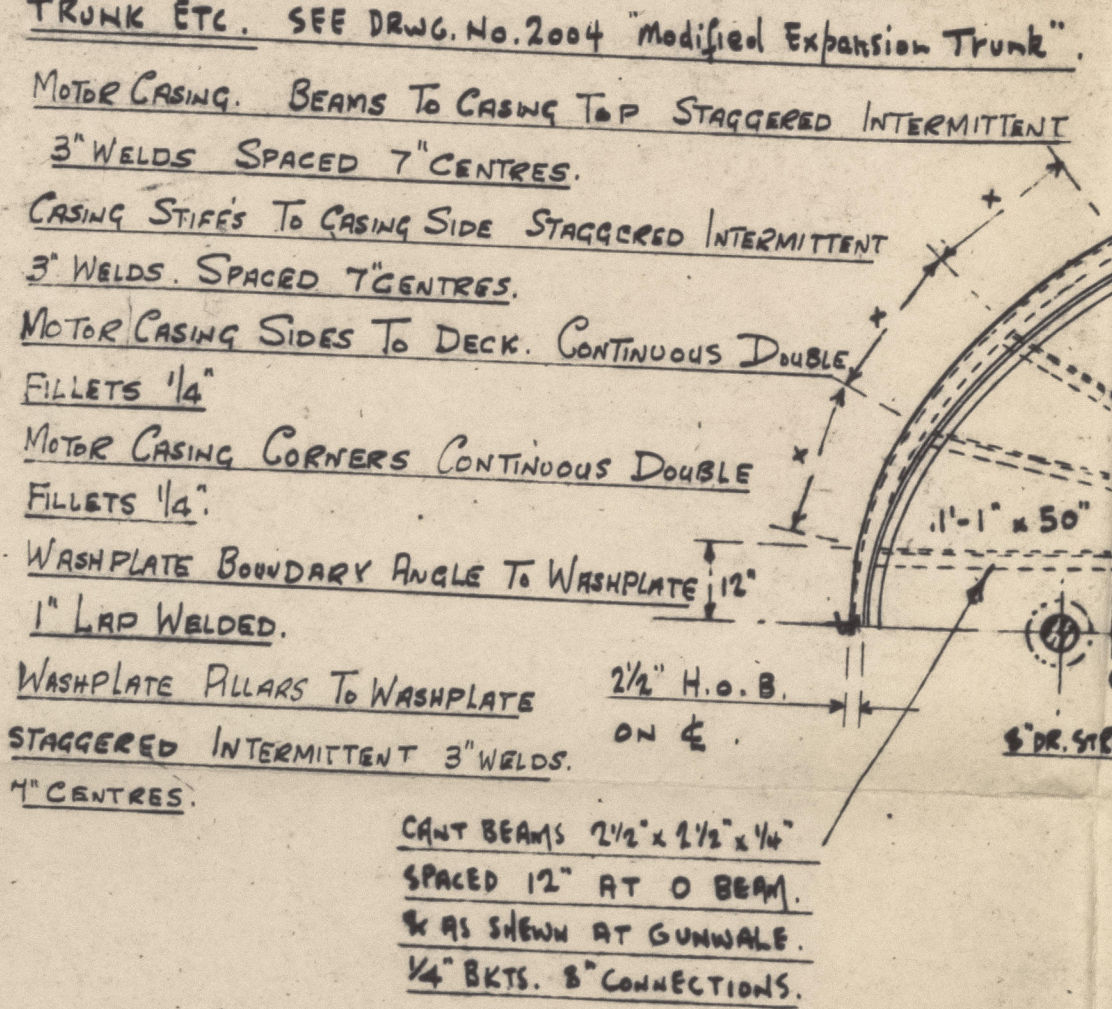 TRUNK ETC. SEE DRWG. No. 2004 "Modified Expansion Trunk".
MOTOR CASING. BEAMS TO CASING TOP STAGGERED INTERMITTENT
3" WELDS SPACED 7" CENTRES.
CASING STIFF'S TO CASING SIDE STAGGERED INTERMITTENT
3" WELDS. SPACED 7" CENTRES.
MOTOR CASING SIDES TO DECK. CONTINUOUS DOUBLE
FILLETS 1/4"
MOTOR CASING CORNERS CONTINUOUS DOUBLE
FILLETS 1/4".
WASHPLATE BOUNDARY ANGLE TO WASHPLATE
1" LAP WELDED.
WASHPLATE PILLARS TO WASHPLATE
STAGGERED INTERMITTENT 3" WELDS.
7" CENTRES.
x
x
x
.1'-1" x 50"
12"
2 1/2" H.O.B.
ON ℄.
8" DR. STR
CANT BEAMS 2 1/2" x 2 1/2" x 1/4"
SPACED 12" AT 0 BEAM.
& AS SHEWN AT GUNWALE.
1/4" BKTS. 8" CONNECTIONS.